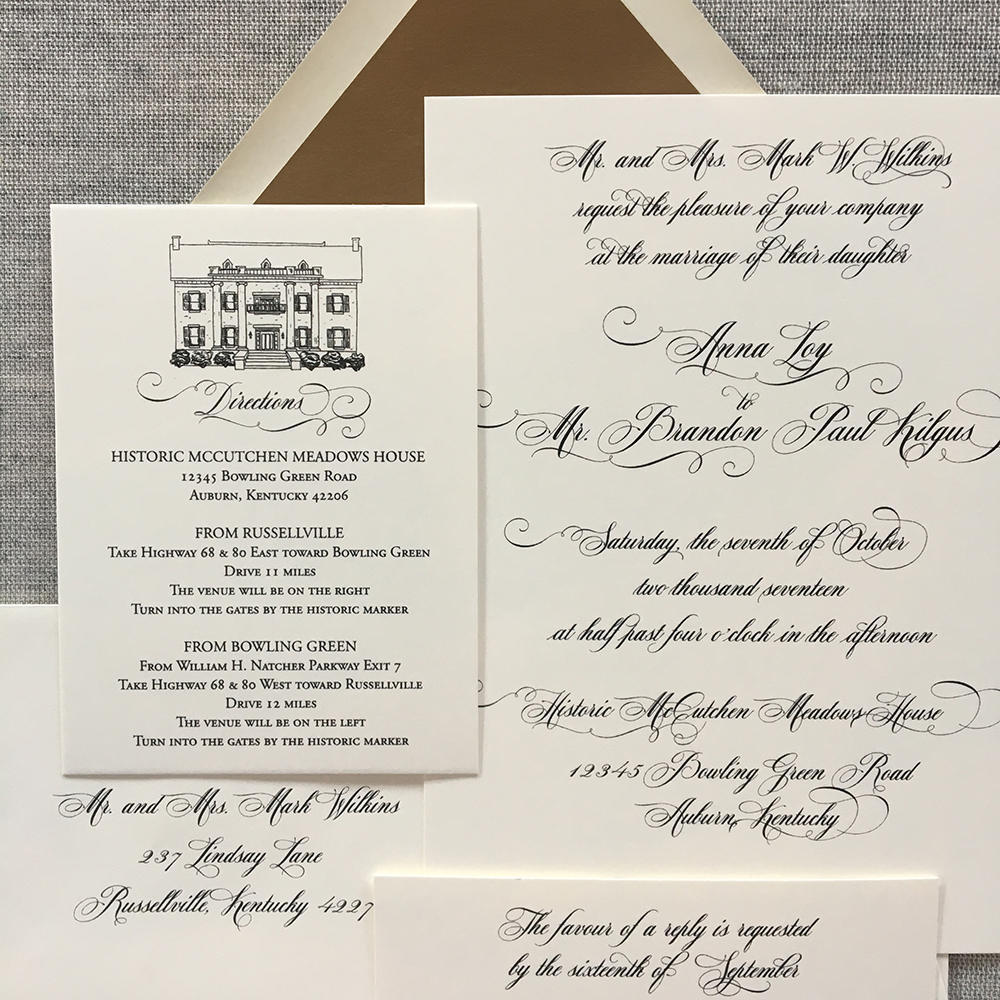 Mr. and Mrs. Mark W. Wilkins
request the pleasure of your company
at the marriage of their daughter
Anna Loy
to
Mr. Brandon Paul Kilgus
Saturday, the seventh of October
two thousand seventeen
at half past four o'clock in the afternoon
Historic McCutchen Meadows House
12345 Bowling Green Road
Auburn, Kentucky
Directions
HISTORIC MCCUTCHEN MEADOWS HOUSE
12345 Bowling Green Road
Auburn, Kentucky 42206
FROM RUSSELLVILLE
Take Highway 68 & 80 East toward Bowling Green
Drive 11 miles
The venue will be on the right
Turn into the gates by the historic marker
FROM BOWLING GREEN
From William H. Natcher Parkway Exit 7
Take Highway 68 & 80 West toward Russellville
Drive 12 miles
The venue will be on the left
Turn into the gates by the historic marker
Mr. and Mrs. Mark Wilkins
237 Lindsay Lane
Russellville, Kentucky 4227
The favour of a reply is requested
by the sixteenth of September